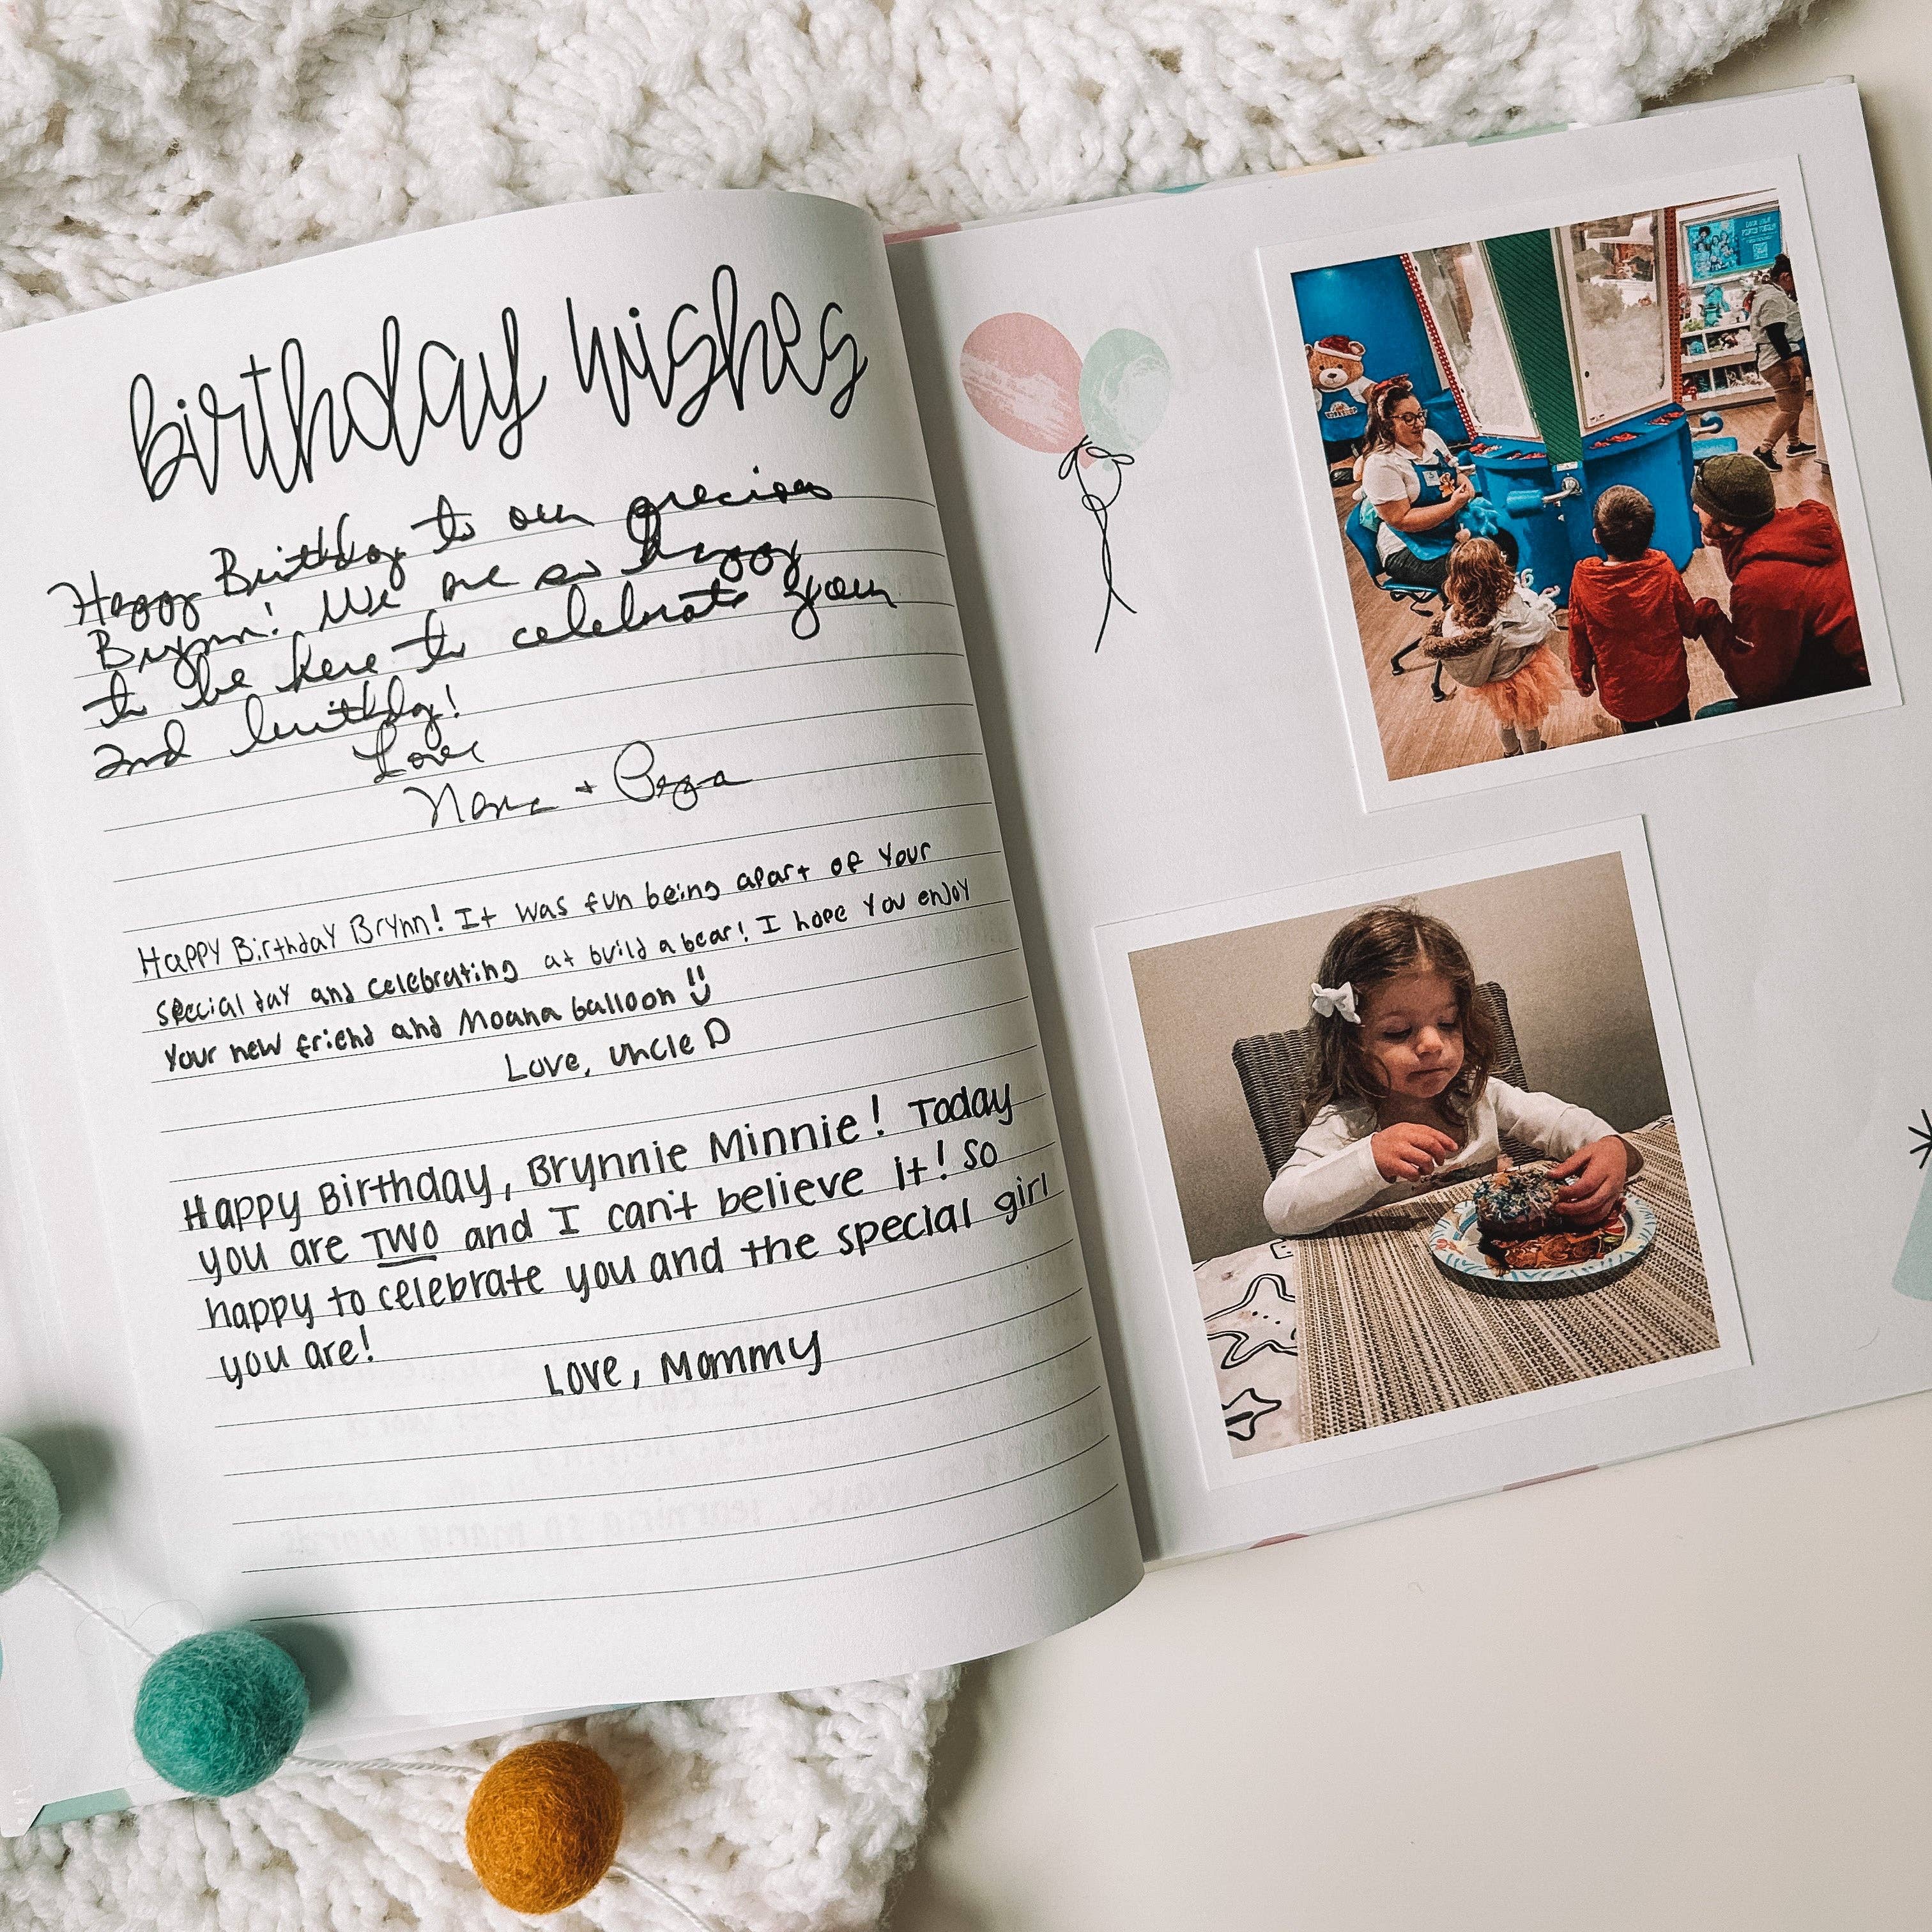 birthday wishes
Happy Birthday to our precious
Brynn! We are so happy
to be here to celebrate your
2nd birthday!
Love
Nana + Papa
Happy Birthday Brynn! It was fun being apart of your
special day and celebrating at build a bear! I hope you enjoy
your new friend and Moana balloon
Love, Uncle D
Happy Birthday, Brynnie Minnie! Today
you are TWO and I can't believe it! So
happy to celebrate you and the special girl
you are!
Love, Mommy